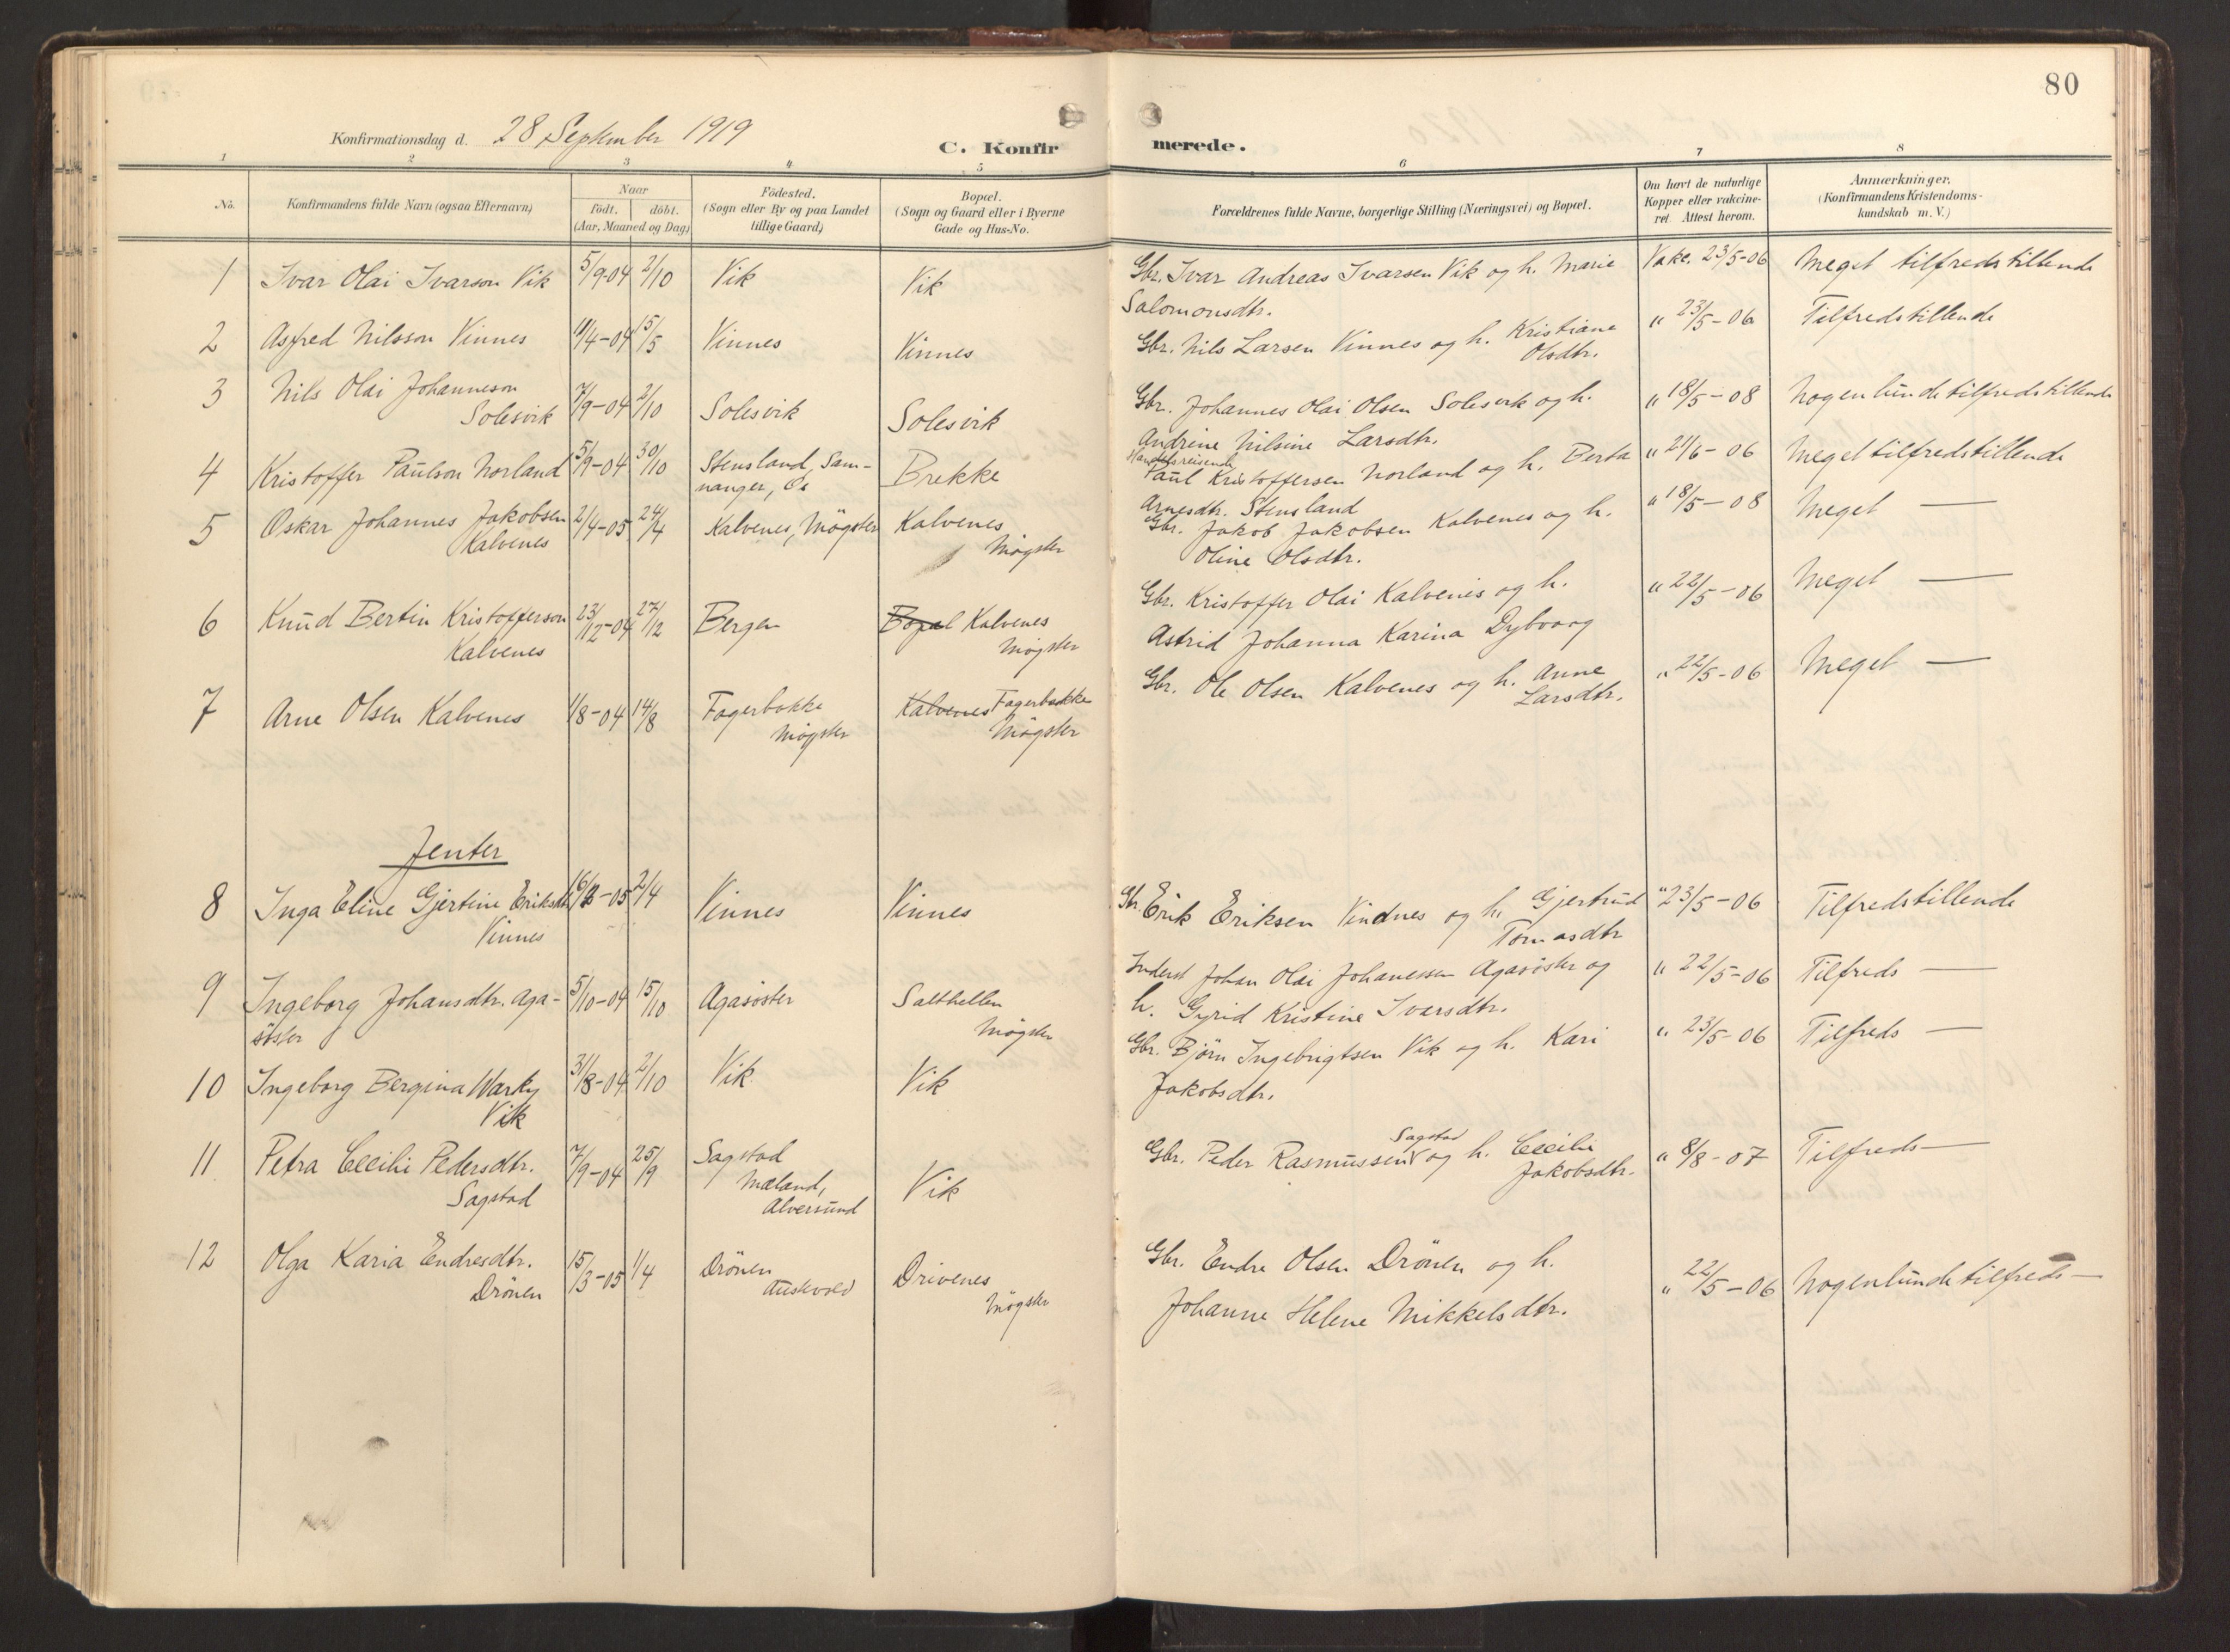 80
Konfirmationsdag d. 28 September 1919
C. Konfirmerede.
1 2 3 4 5 6 7 8
No.
Konfirmandens fulde Navn (ogsaa Efternavn)
Naar
födt. | döbt.
(Aar, Maaned og Dag)
Födested.
(Sogn eller By og paa Landet
tillige Gaard)
Bopæl.
(Sogn og Gaard eller i Byerne
Gade og Hus-No.
Forældrenes fulde Navne, borgerlige Stilling (Næringsvei) og Bopæl.
Om havt de naturlige
Kopper eller vakcine-
ret Attest herom.
Anmærkninger.
(Konfirmandens Kristendoms-
kundskab m. V.)
1 Ivar Olai Ivarson Vik 5/9-04 2/10 Vik Vik Gbr. Ivar Andreas Ivarsen Vik og h. Marie Vakc. 23/5-06 Meget tilfredstillende
Salomonsdtr.
2 Asfred Nilsson Vinnes 11/4-04 15/5 Vinnes Vinnes Gbr. Nils Larsen Vinnes og h. Kristiane " 23/5-06 Tilfredstillende
Olsdtr.
3 Nils Olai Johanneson 7/9-04 2/10 Solesvik Solesvik Gbr. Johannes Olai Olsen Solesvik og h. " 18/5-08 Nogenlunde tilfredstillende
Solesvik Andrine Nilsine Larsdtr.
Handelsreisende
4 Kristoffer Paulson Norland 5/9-04 30/10 Stensland, Sam- Brekke Paul Kristoffersen Norland og h. Berta " 21/6-06 Meget tilfredstillende
nanger, Os Arnesdtr. Stensland
5 Oskar Johannes Jakobsen 2/4-05 24/4 Kalvenes, Mögster Kalvenes Gbr. Jakob Jakobsen Kalvenes og h. " 18/5-08 Meget —
Kalvenes Mögster Oline Olsdtr.
6 Knud Bertin Kristofferson 23/12-04 27/12 Bergen Bopæl Kalvenes Gbr. Kristoffer Olai Kalvenes og h. " 22/5-06 Meget —
Kalvenes Mögster Astrid Johanna Karina Dybvaag
7 Arne Olsen Kalvenes 1/8-04 14/8 Fagerbakke Kalvenes Fagerbakke Gbr. Ole Olsen Kalvenes og h. Anne " 22/5-06 Meget —
Mögster Mögster Larsdtr.
Jenter
8 Inga Eline Gjertine Eriksdtr. 2/4 Vinnes Vinnes Gbr. Erik Eriksen Vindnes og h. Gjertrud " 23/5-06 Tilfredstillende
Vinnes Tomasdtr
9 Ingeborg Johansdtr. Aga- 5/10-04 15/10 Agasöster Salthellen Inderst Johan Olai Johanessen Agasöster og " 22/5-06 Tilfreds —
söster Mögster h. Gyrid Kristine Ivarsdtr.
10 Ingeborg Bergina Warky 31/8-04 2/10 Vik Vik Gbr. Björn Ingebrigtsen Vik og h. Kari " 23/5-06 Tilfreds —
Vik Jakobsdtr.
11 Petra Cecilie Pedersdtr. 7/9-04 25/9 Sagstad Vik Gbr. Peder Rasmussen Sagstad og h. Cecilie " 8/8-07 Tilfreds —
Sagstad Mæland, Jakobsdtr.
Alversund
12 Olga Karia Endresdtr. 15/3-05 1/4 Drönen Drivenes Gbr. Endre Olsen Drönen og h. " 22/5-06 Nogenlunde tilfreds —
Drönen Austevold Mögster Johanne Helene Mikkelsdtr.